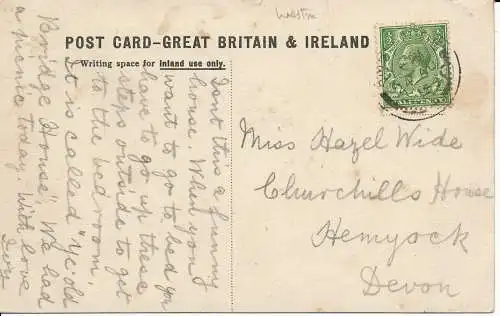 POST CARD–GREAT BRITAIN & IRELAND
Writing space for inland use only.
Isnt this a funny
house. When you
want to go to bed you
have to go up these
steps outside to get
to the bedroom.
It is called "Ye old
Bridge House". We had
a picnic today. With love
Ivy
Miss Hazel Wide
Churchills House
Hemyock
Devon